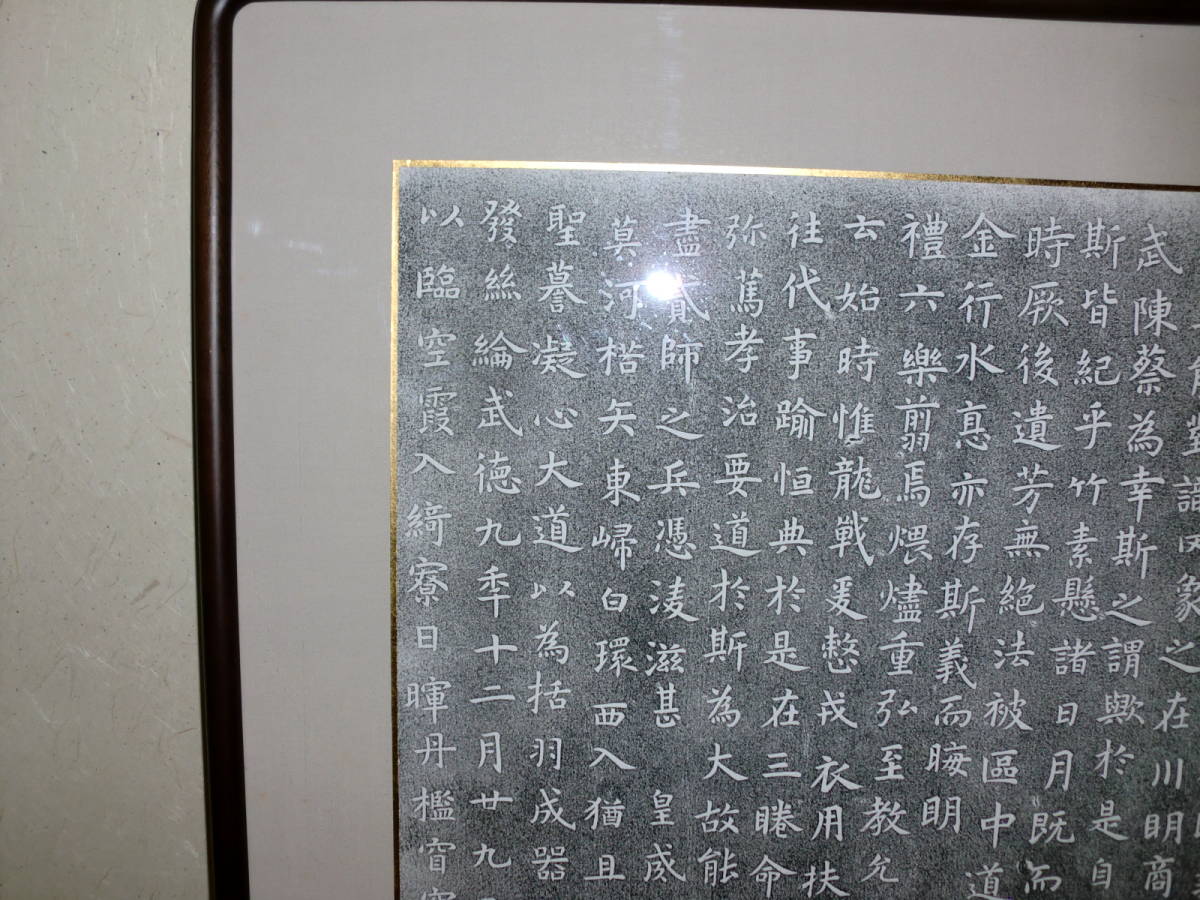 對識罔象之在川明商
武陳蔡為幸斯之謂歟於是自
斯皆紀乎竹素懸諸日月既而
時厥後遺芳無絕法被區中道
金行水息亦存斯義而晦明
禮六樂翦焉煨燼重弘至教允
云始時惟龍戰爰整戎衣用扶
往代事踰恒典於是在三睠命
弥篤孝治要道於斯為大故能
盡貳師之兵憑凌滋甚皇威
莫河楛矢東歸白環西入猶且
聖謩凝心大道以為括羽成器
發絲綸武德九年十二月廿九
以臨空霞入綺寮日暉丹檻窅